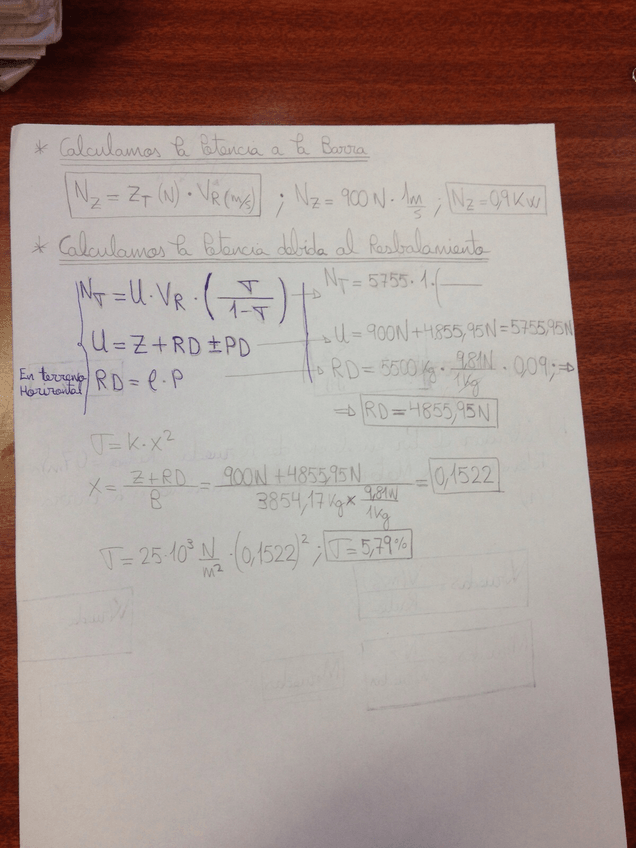 * Calculamos la Potencia a la Barra
N_Z = Z_T (N) · V_R (m/s) ; N_Z = 900 N · 1 m/s ; N_Z = 0,9 KW
* Calculamos la Potencia debida al Resbalamiento
N_T = U · V_R · (σ / 1-σ) → N_T = 5755 · 1 · (—
U = Z + RD ± PD → U = 900N + 4855,95N = 5755,95N
En terreno Horizontal RD = ρ · P → RD = 5500 Kg · 9,81N/1Kg · 0,09 ; ⇒
⇒ RD = 4855,95N
σ = K · x²
X = Z + RD / B = 900N + 4855,95N / 3854,17 Kg x 9,81N/1Kg = 0,1522
σ = 25 · 10³ N/m² · (0,1522)² ; σ = 5,79%